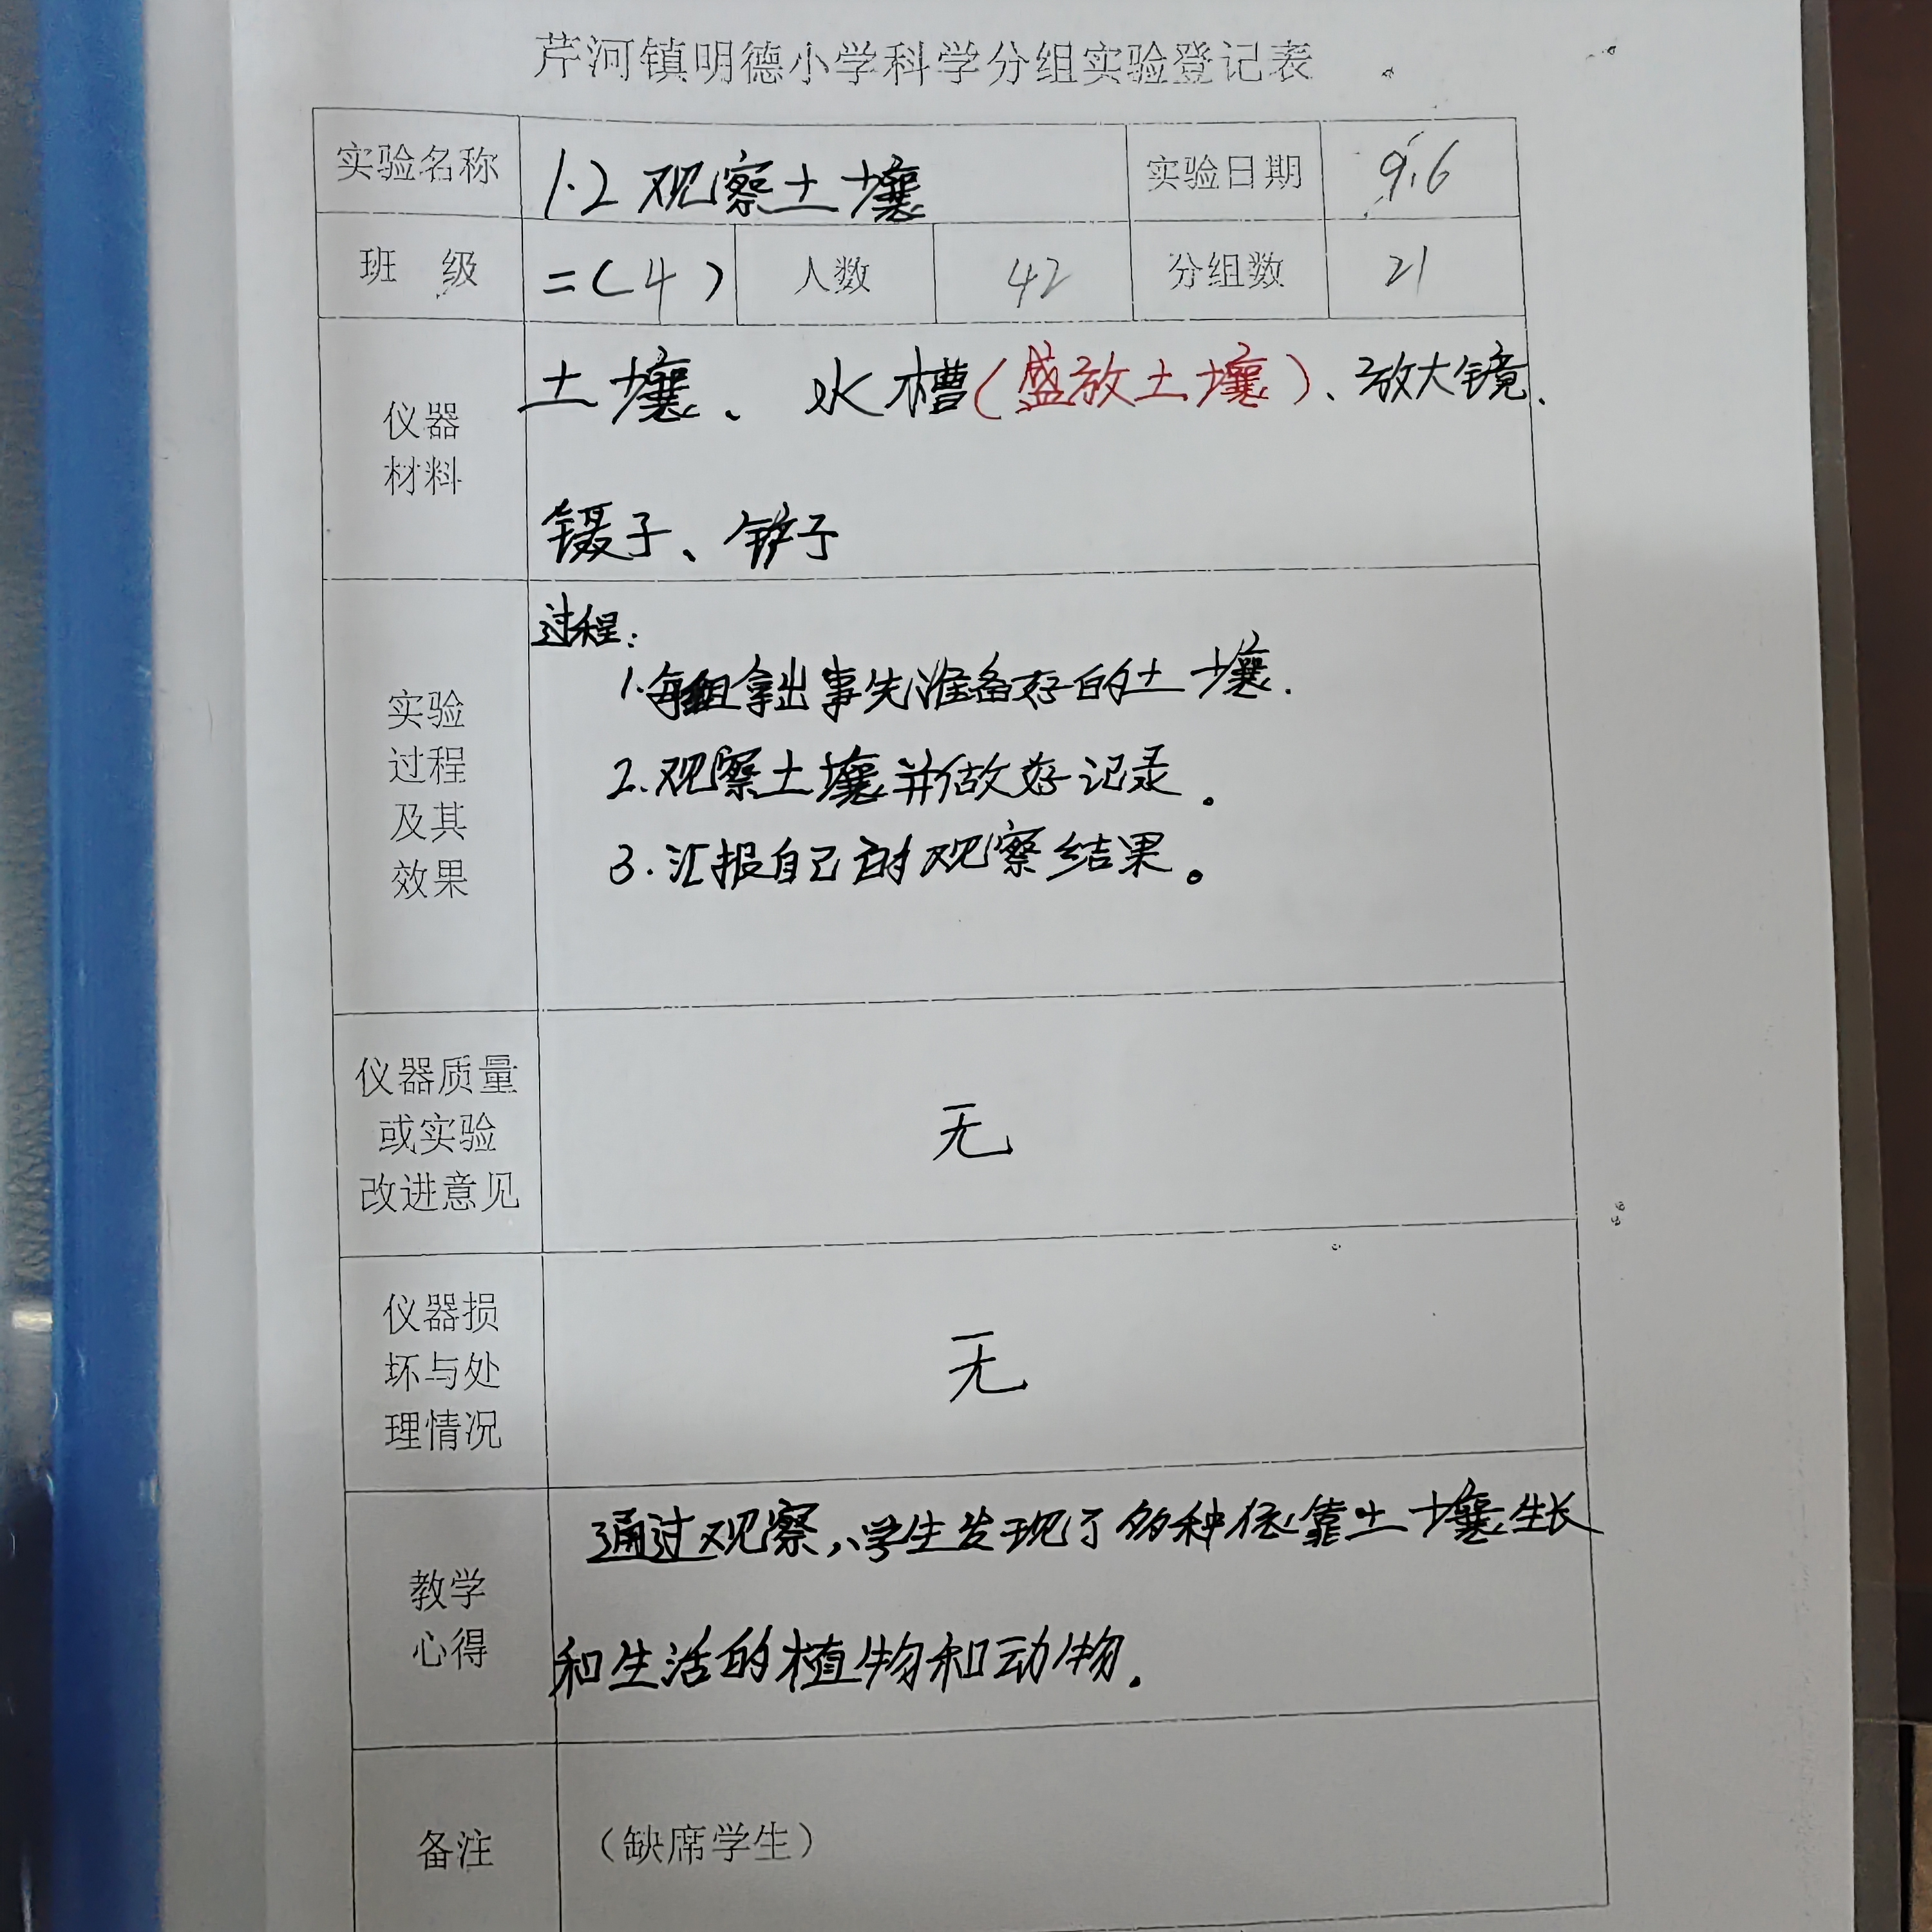 芹河镇明德小学科学分组实验登记表
实验名称 1.2 观察土壤 实验日期 9.6
班 级 二(4) 人数 42 分组数 21
仪器
材料
土壤、水槽(盛放土壤)、放大镜、
镊子、铲子
实验
过程
及其
效果
过程:
1.每组拿出事先准备好的土壤.
2.观察土壤并做好记录。
3.汇报自己的观察结果。
仪器质量
或实验
改进意见
无
仪器损
坏与处
理情况
无
教学
心得
通过观察,学生发现了多种依靠土壤生长
和生活的植物和动物.
备注
(缺席学生)